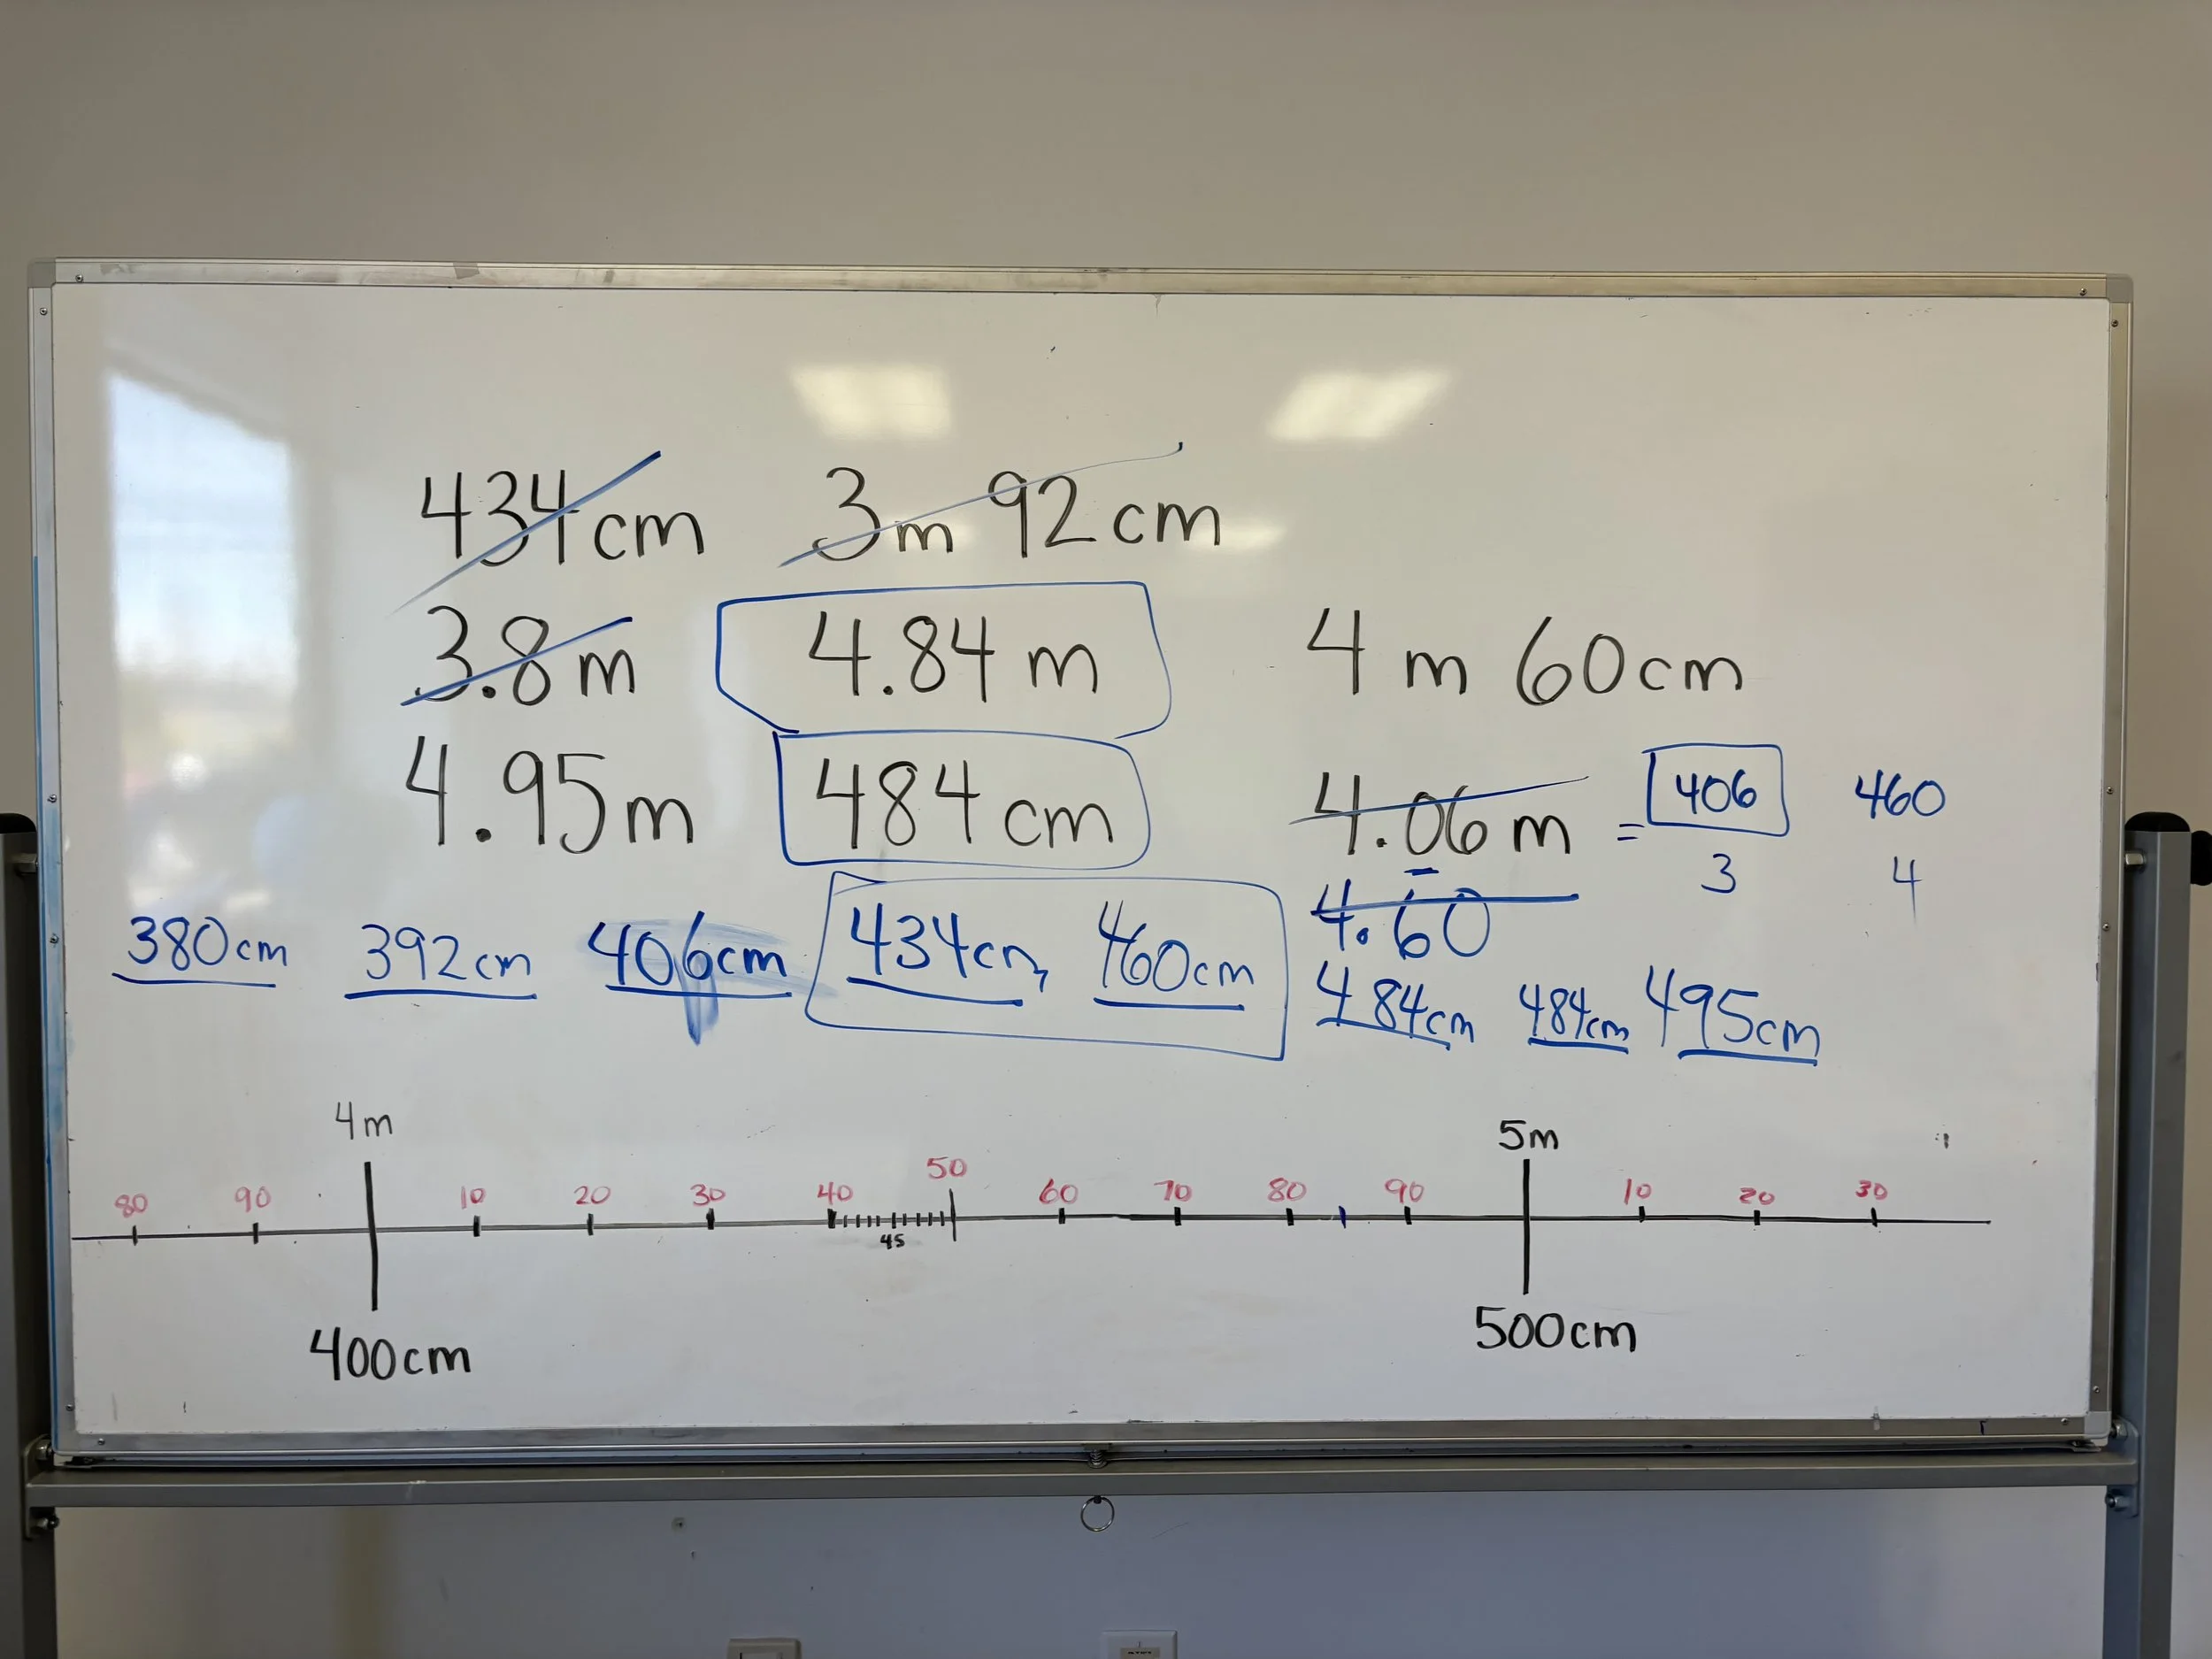 434cm 3m 92cm
3.8m 4.84 m 4 m 60cm
4.95m 484 cm 4.06 m = 406 460
3 4
4.60
380cm 392cm 406cm 434cm, 460cm
484cm 484cm 495cm
4m 5m
80 90 10 20 30 40 50 60 70 80 90 10 20 30
45
400cm 500cm